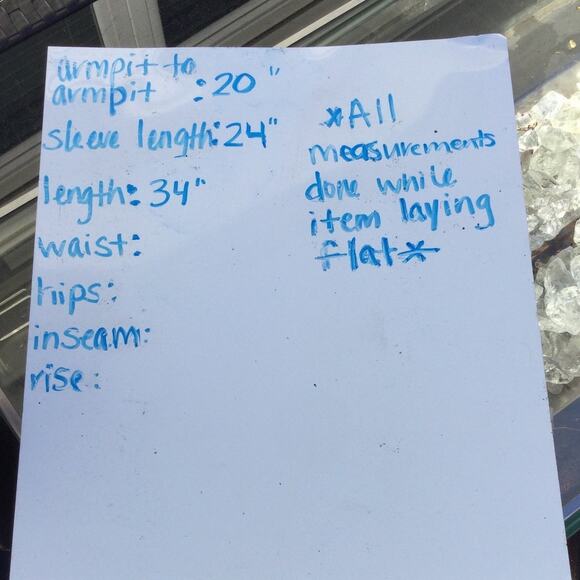 armpit to
armpit : 20"
sleeve length: 24"
length: 34"
waist:
hips:
inseam:
rise:
*All
measurements
done while
item laying
flat*